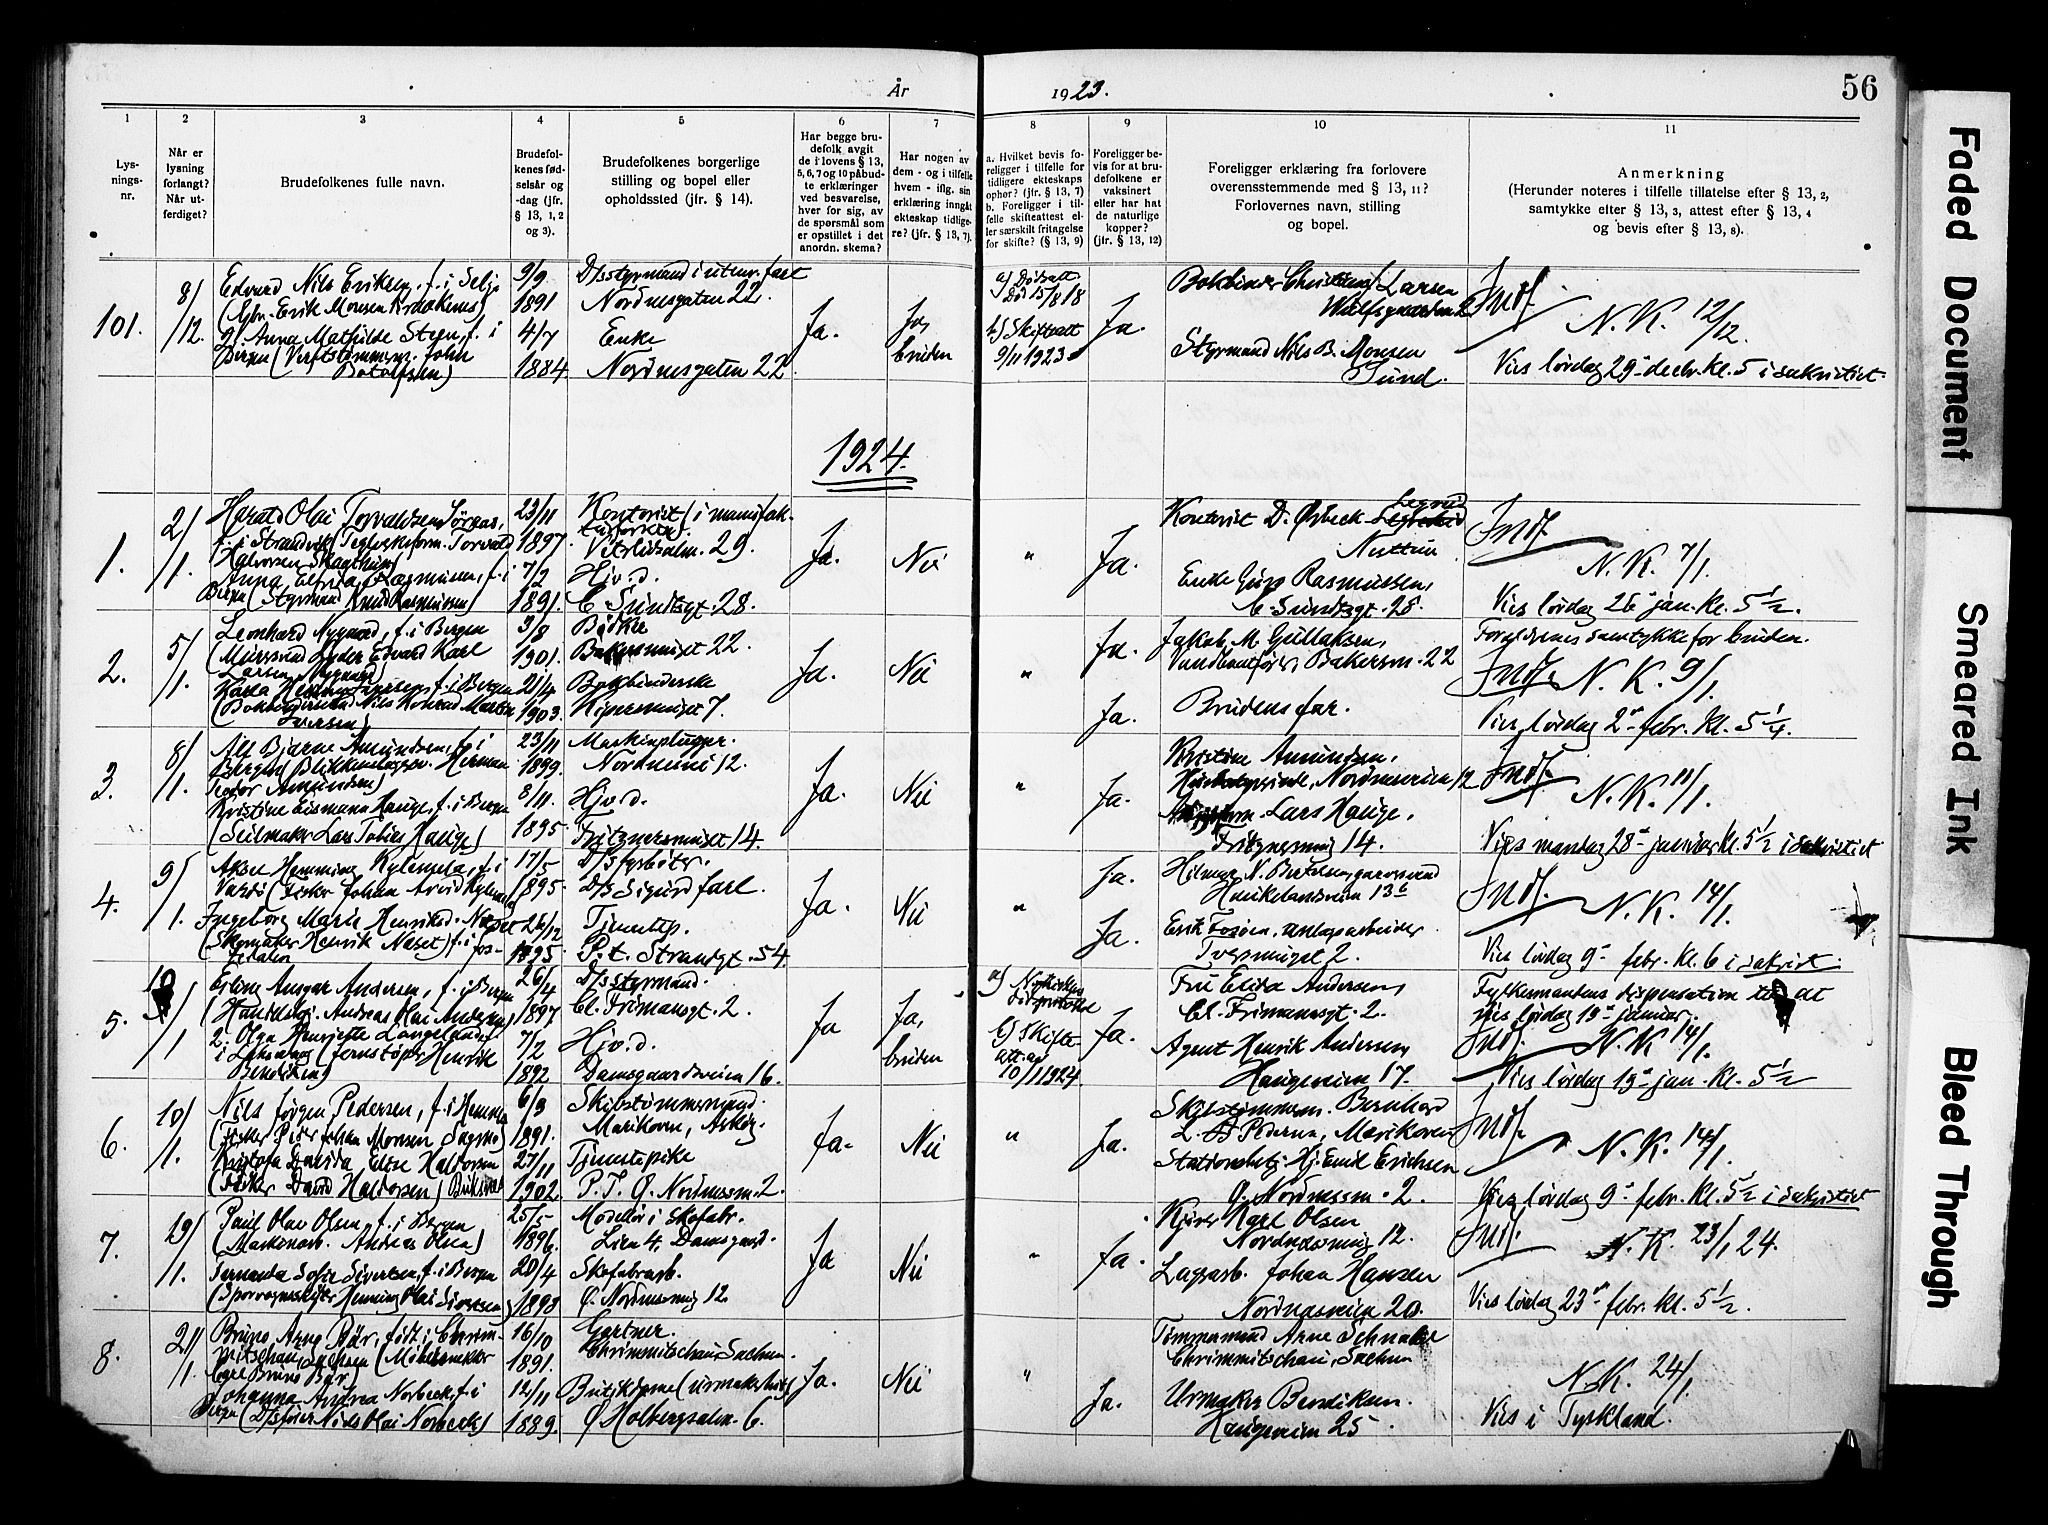 56
År 1923.
1 2 3 4 5 6 7 8 9 10 11
Lys-
nings-
nr.
Når er
lysning
forlangt?
Når ut-
ferdiget?
Brudefolkenes fulle navn.
Brudefol-
kenes fød-
selsår og
-dag (jfr.
§ 13, 1, 2
og 3).
Brudefolkenes borgerlige
stilling og bopel eller
opholdssted (jfr. § 14).
Har begge bru-
defolk avgit
de i lovens § 13,
5, 6, 7 og 10 påbud-
te erklæringer
ved besvarelse,
hver for sig, av
de spørsmål som
er opstillet i det
anordn. skema?
Har nogen av
dem - og i tilfelle
hvem - iflg. sin
erklæring inngåt
ekteskap tidlige-
re? (jfr. § 13, 7).
a. Hvilket bevis fo-
religger i tilfelle for
tidligere ekteskaps
ophør? (jfr. § 13, 7)
b. Foreligger i til-
felle skifteattest el-
ler særskilt fritagelse
for skifte? (§ 13, 9)
Foreligger be-
vis for at bru-
defolkene er
vaksinert
eller har hat
de naturlige
kopper?
(jfr. § 13, 12)
Foreligger erklæring fra forlovere
overensstemmende med § 13, 11?
Forlovernes navn, stilling
og bopel.
Anmerkning
(Herunder noteres i tilfelle tillatelse efter § 13, 2,
samtykke efter § 13, 3, attest efter § 13, 4
og bevis efter § 13, 8).
101.
8/12.
Edvard Nils Eriksen, f. i Selje
g. Anna Mathilde Steen, f. i
Bergen (Verftstømmerm. John
9/9
1891
4/7
1884.
D/sstyrmand i utenr. fart
Nordnesgaten 22.
Enke
Nordnesgaten 22.
Ja.
Ja,
bruden
a) Dødsatt.
død 15/8 18
b) Skifteatt
9/11 1923
Ja.
Bokbinder Larsen
Styrmand Nils B. Monsen
Sund.
Indf.
N. K. 12/12.
Vies lørdag 29de decbr. kl. 5 i sakristiet.
1924.
1.
2/1.
Harald Olai Torvaldsen
Anna Elfrida Rasmussen, f. i
Bergen (Styrmand Knud Rasmussen)
23/11
1897.
7/2
1891.
Kontorist (i manufak-
Vetrlidsalm. 29.
Hj.v.d.
C. Sundtsgt. 28.
Ja.
Nei
"
Ja.
Kontorist D. Ørbeck
Nuttun
Enke Rasmussen,
C. Sundtsgt. 28.
Indf.
N. K. 7/1.
Vies lørdag 26de jan. kl. 5 1/2.
2.
5/1.
Leonhard Nygaard, f. i Bergen
(Murersvend Lyder Edvard Karl
Larsen Nygaard)
3/8
1901.
21/4
1903.
Bødker
Bakersmuget 22.
Bokbinderske
Kipersmuget 7.
Ja.
Nei
"
Ja.
Ja.
Jakob M. Gullaksen,
Bakersm. 22
Brudens far.
Forældrenes samtykke for bruden.
Indf. N. K. 9/1.
Vies lørdag 2den febr. kl. 5 1/4.
3.
8/1.
Alf Bjarne Amundsen, f. i
Bergen
Amundsen)
Kristine Eismann Hauge, f. i Bergen
(Seilmaker Lars Tobias Hauge)
23/11
1899.
8/11.
1895.
Maskinplugger.
Nordnesvei 12.
Hj.v.d.
Fritznersmuget 14.
Ja.
Nei
"
Ja.
Kristine Amundsen,
Nordnesveien 12
Lars Hauge,
Fritznersmug 14.
Indf.
N. K. 11/1.
Vies mandag 28de januar kl. 5 1/2 i sakristiet
4.
9/1.
Aksel Hemming Kylempela, f. i
Vardø (Fisker Johan Arvid Kylempela
Ingeborg Marie Henriksd. Næset
(Skomaker Henrik Næset) f. i Fos-
17/5
1895.
26/12
1895.
D/s fyrbøter.
D/s Sigurd Jarl.
Tjenestep.
P. t. Strandgt. 54.
Ja.
Nei
"
Ja.
Ja.
Haukelandsveien 13b
Erik Fosøen, anlægsarbeider
Tversmuget 2.
Indf.
N. K. 14/1.
Vies lørdag 9de febr. kl. 6 i sakrist.
5.
10/1
Erling Ansgar Andersen, f. i Bergen
(Handelsbj. Andreas Olai Andersen)
2. Olga Henriette Langeland
i Laksevaag (Jernstøper Henrik
Bendiksen)
26/4
1897.
7/2
1892
D/sstyrmand.
Cl. Frimansgt. 2.
Hj.v.d.
Damsgaardsveien 16.
Ja
Ja,
bruden
b) Skifte-
att. av
10/1 1924.
Ja.
Fru Elida Andersen,
Cl. Frimansgt. 2.
Agent Henrik Andersen,
Haugeveien 17.
Fylkesmandens dispensation til at
vies lørdag 19de januar.
Indf.
N. K. 14/1.
Vies lørdag 19de jan. kl. 5 1/2
6.
10/1.
Nils Jørgen Pedersen, f. i Hemnes
(Fisker Peder Johan Monsen
Kristofa Davida Elise Haldorsen
(Fisker David Haldorsen) Buksnes
6/9
1891.
27/11
1902.
Skibstømmermand.
Marikoven, Askøy.
Tjenestepike
P. T. Ø. Nordnessm. 2.
Ja.
Nei
"
Ja.
Skibstømmerm. Bernhard
Pedersen, Marikoven
Stationsbetj. Hj. Emil Erichsen
Ø. Nordnessm. 2.
Indf.
N. K. 14/1.
Vies lørdag 9de febr. kl. 5 1/2 i sakristiet
7.
19/1.
Paul Olav Olsen, f. i Bergen
(Maskinarb. Andreas Olsen)
Fernanda Sofie Sivertsen, f. i Bergen
(Sporvognsskifter Henning Olai Sivertsen)
25/5
1896.
20/4
1898
Modellør i skofabr.
Lien 4, Damsgaard.
Skofabrarb.
Ø. Nordnessmug 12.
Ja
Nei
"
Ja.
Kjører Karl Olsen
Nordnessmug 12.
Lagerarb. Johan Hansen
Nordnesveien 20.
Indf.
N. K. 23/1 24.
Vies lørdag 23de febr. kl. 5 1/2.
8.
21/1.
Bruno Arno Bär, født i Chrim-
mitschau, Sachsen (Möbelpolierer
Carl Bruno Bär)
Johanna Andrea Norbeck, f. i
Bergen (D/sfører Nils Olai Norbeck)
16/10
1891.
12/11
1889.
Gartner.
Chrimmitschau Sachsen.
Butikdame (urmakerbutik)
Ø Holbergsalm. 6.
Ja.
Nei
"
Ja.
Tømmermand Arne Schnabel
Chrimmitschau, Sachsen
Urmaker Bendiksen.
Haugeveien 25.
N. K. 24/1.
Vies i Tyskland.
Faded Document
Smeared Ink
Bleed Through